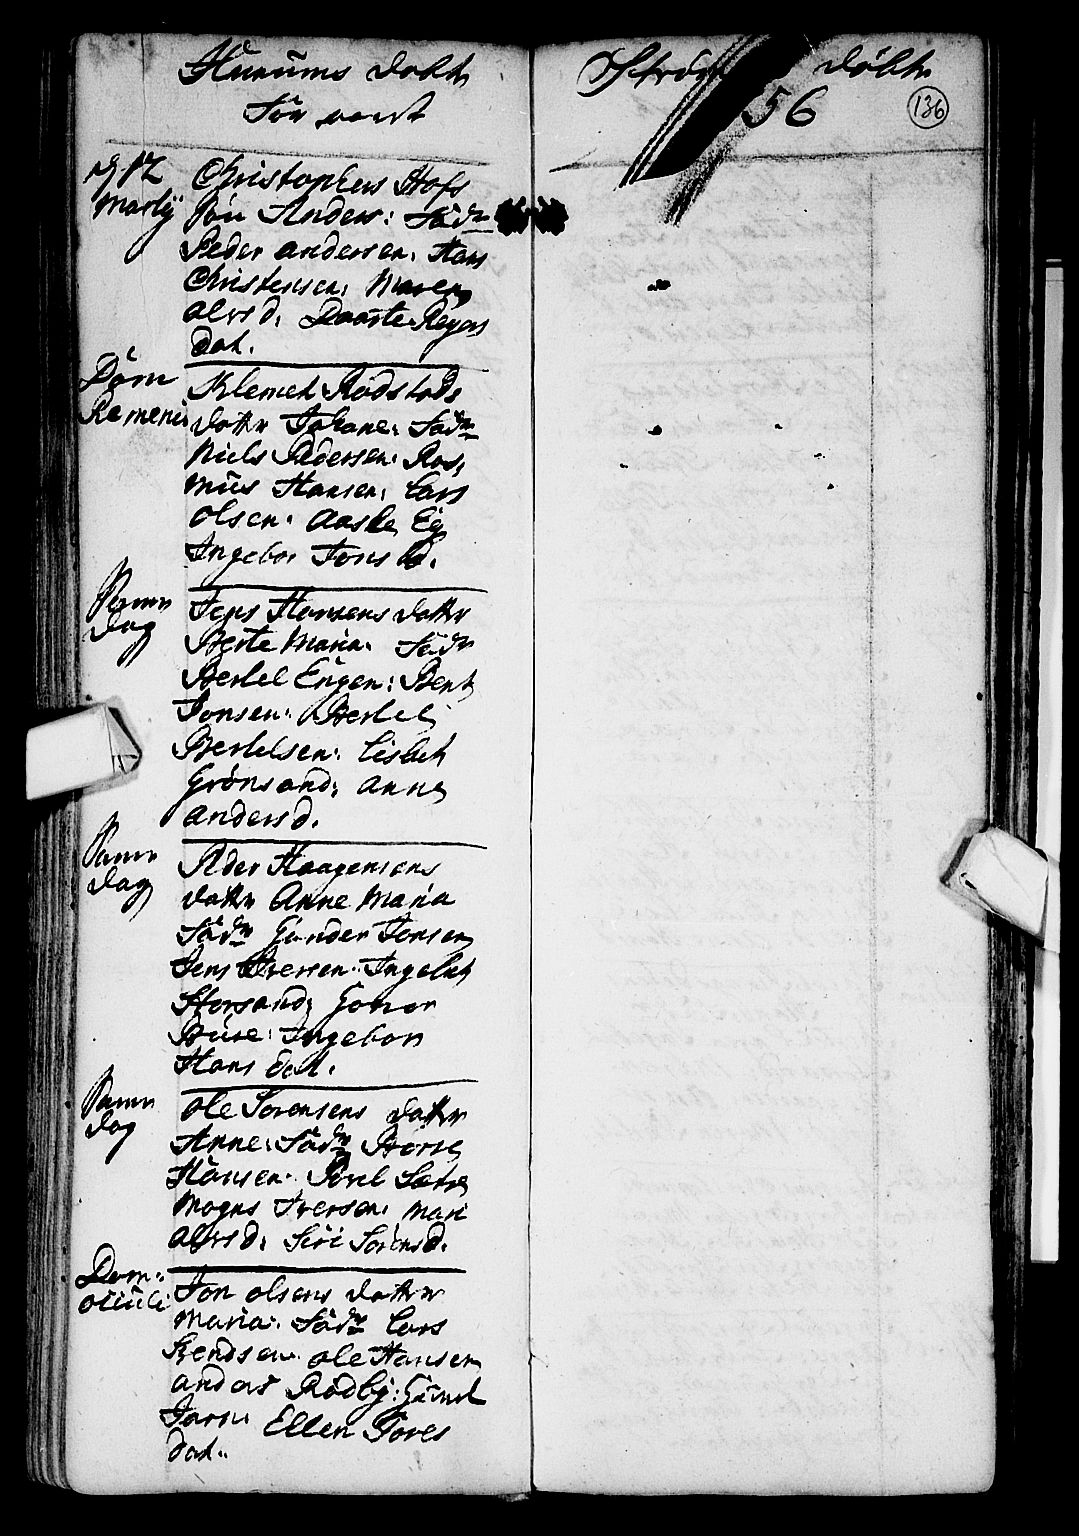 Hurums døbte
Christophers Hofs
Søn Anders: Fad:
Peder andersen. Hans
Christensen: Maren
alvsd. Dorte Reyers
dat.
Dom
Remenis
Klemet Rødstads
datter Johane: Fad:
Niels Pedersen. Ras,
mus Hansen. Lars
olsen. Aaste Eg
Ingebor Jons d.
Samme
dag
Jens Hansens datter
Berte Maria. Fad:
Bertel Engen: Bent
Jonsen. Bertel
Bertelsen. Lisbet
Grønsand: anne
andersd.
Samme
dag
Peder Haagensens
datter Anne Maria
Fad: Gunder Jonsen
Jens Iversen. Ingebet
Storsand: Gonor
Buse. Ingebor
Hans dat.
Samme
dag
Ole Sørensens datter
Anne: Fad: Børre
Hansen. Povel Sætre
Mogns Iversen. Mari
alvsd. Siri Sørensd.
Dom.
oculi
Jon olsens datter
Maria. Fad: Lars
Svendsen. ole Hansen
anders Rødby: Gunil
Ellen Tores
dat.
døbte
56
136